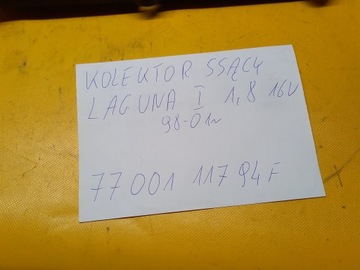 KOLEKTOR SSĄCY
LAGUNA I 1,8 16V
98-01r
77001 11794F